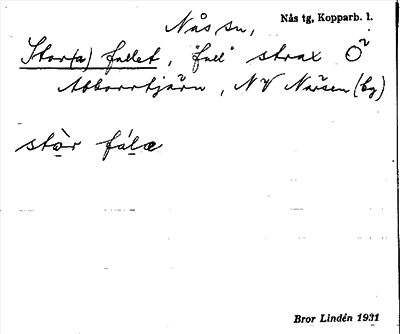 Nås sn, Nås tg, Kopparb. l.
Stor(a) fallet, "fall" strax Ö
Abborrtjärn, NV Närsen (by)
stòr fálæ
Bror Lindén 1931